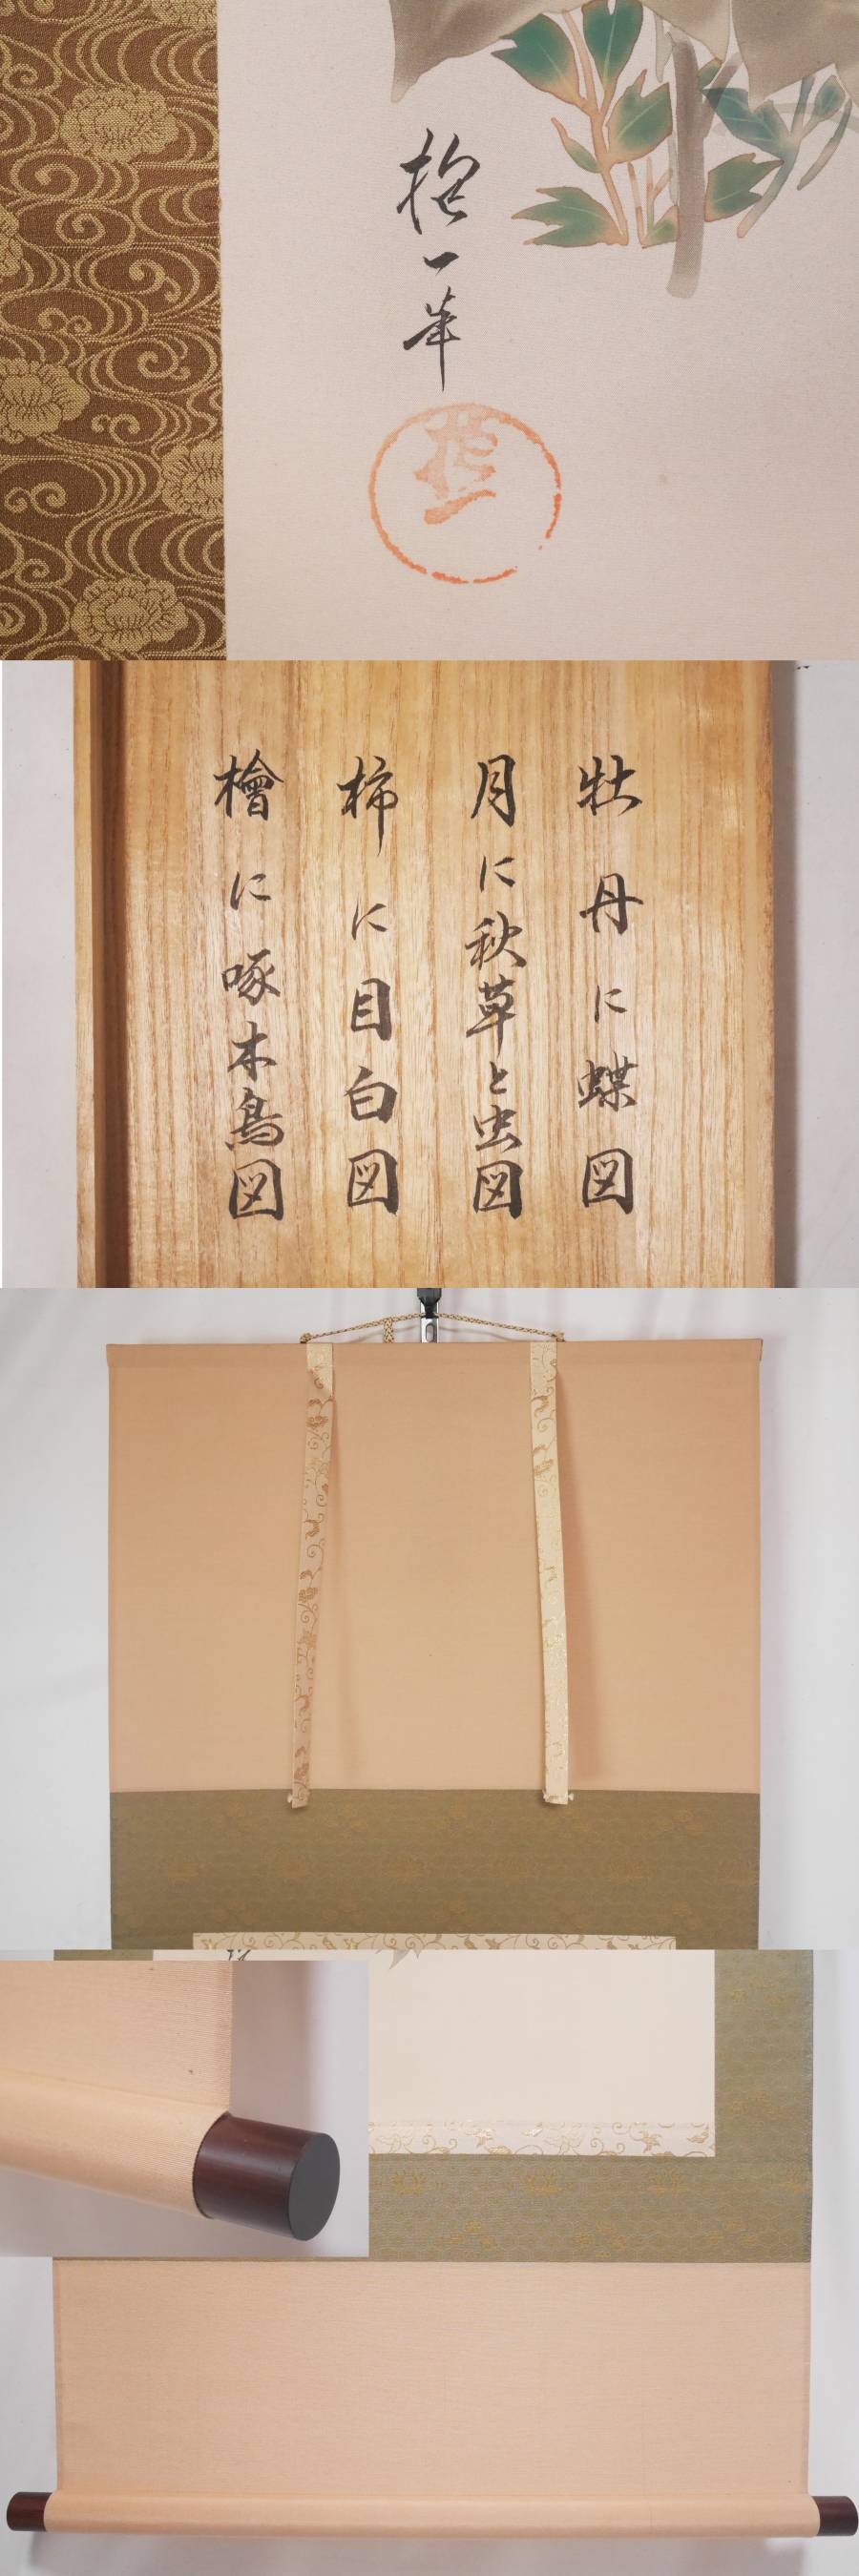 抱一筆
抱一
牡丹に蝶図
月に秋草と虫図
柿に目白図
檜に啄木鳥図